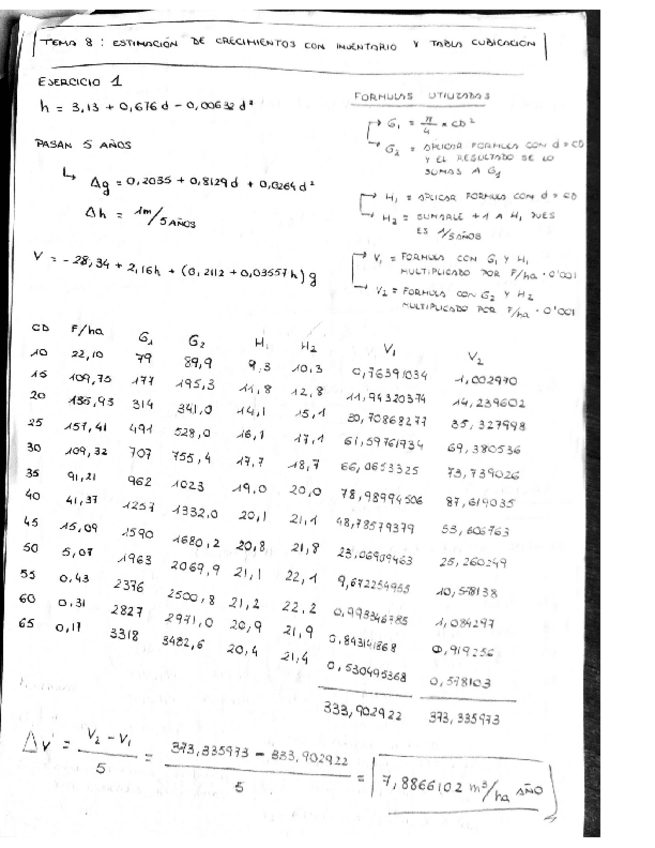 TEMA 8 : ESTIMACIÓN DE CRECIMIENTOS CON INVENTARIO Y TABLA CUBICACION
EJERCICIO 1
h = 3,13 + 0,676 d - 0,00632 d²
PASAN 5 AÑOS
↳ Δg = 0,2035 + 0,8129 d + 0,0264 d²
Δh = 1m/5 AÑOS
V = -28,34 + 2,16h + (0,2112 + 0,03557h) g
FORMULAS UTILIZADAS
G₁ = π/4 * CD²
G₂ = APLICAR FORMULA CON d = CD
Y EL RESULTADO SE LO
SUMAS A G₁
H₁ = APLICAR FORMULA CON d = CD
H₂ = SUMARLE +1 A H₁ PUES
ES 1/5 AÑOS
V₁ = FORMULA CON G₁ Y H₁
MULTIPLICADO POR F/ha · 0'001
V₂ = FORMULA CON G₂ Y H₂
MULTIPLICADO POR F/ha · 0'001
CD F/ha G₁ G₂ H₁ H₂ V₁ V₂
10 22,10 79 89,9 9,3 10,3 0,76391034 1,002970
15 109,75 177 195,3 11,8 12,8 11,94320374 14,239602
20 135,93 314 341,0 14,1 15,1 30,70868277 35,327998
25 157,41 491 528,0 16,1 17,1 61,59761934 69,380536
30 109,32 707 755,4 17,7 18,7 66,0653325 73,739026
35 91,21 962 1023 19,0 20,0 78,98994506 87,619035
40 41,37 1257 1332,0 20,1 21,1 48,78579379 53,606763
45 15,09 1590 1680,2 20,8 21,8 23,06909463 25,260249
50 5,07 1963 2069,9 21,1 22,1 9,672254955 10,578138
55 0,43 2376 2500,8 21,2 22,2 0,998346785 1,084297
60 0,31 2827 2971,0 20,9 21,9 0,843141868 0,919256
65 0,17 3318 3482,6 20,4 21,4 0,530495368 0,578103
333,902922 373,335973
ΔV = V₂ - V₁ / 5 = 373,335973 - 333,902922 / 5 = 7,8866102 m³/ha AÑO